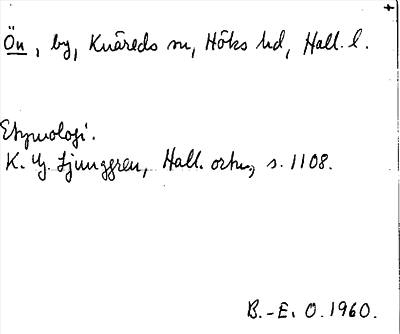 Ön, by, Knäreds sn, Höks hd, Hall. l.
Etymologi.
K. G. Ljunggren, Hall. ortn., s. 1108.
B.-E. O. 1960.